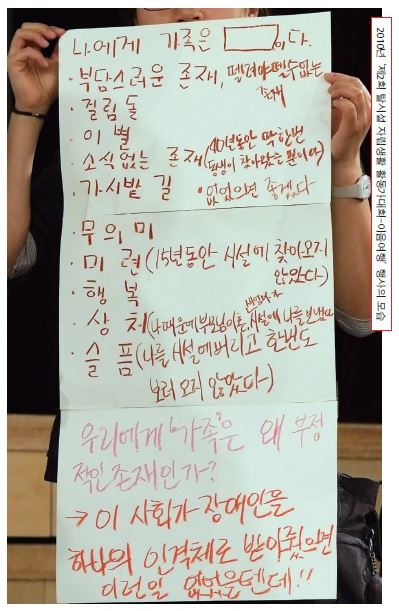 나에게 가족은 □이다.
· 부담스러운 존재, 뗄려야 뗄 수 없는 존재
· 걸림돌
· 이별
· 소식없는 존재 (40년동안 딱 한번
동생이 찾아왔을 뿐이다)
· 가시밭길 · 없었으면 좋겠다
· 무의미
· 미련 (15년동안 시설에 찾아오지
않았다)
· 행복
· 상처 (나때문에 부모님이혼, 시설에 나를 보냈다
· 슬픔 (나를 시설에 버리고 한번도
보러 오지 않았다)
우리에게 "가족"은 왜 부정
적인 존재인가?
→ 이 사회가 장애인을
하나의 인격체로 받아줬으면
이런일 없었을텐데!!
2010년 제2회 탈시설 자립생활 활동가대회-이음여행 행사의 모습